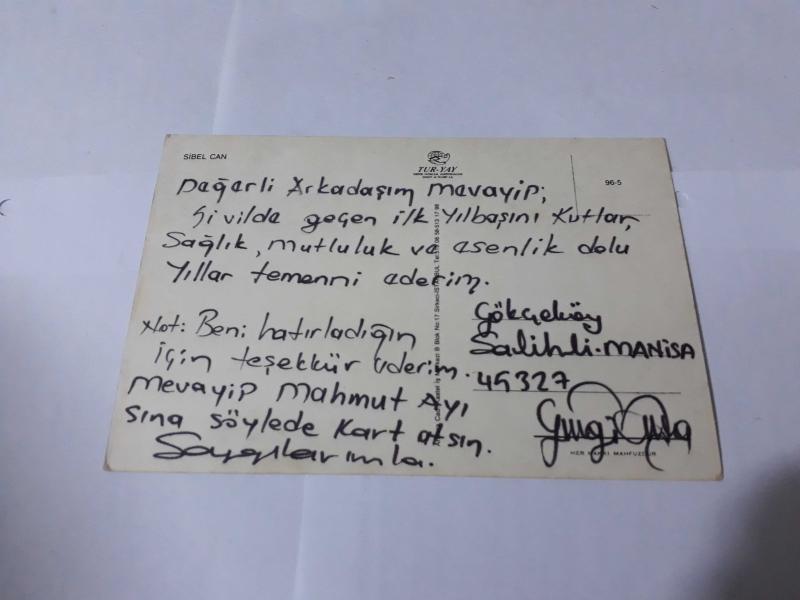 SİBEL CAN
TUR-YAY
96-5
Değerli Arkadaşım Mevayip;
Sivilde geçen ilk Yılbaşını Kutlar,
Sağlık, mutluluk ve esenlik dolu
Yıllar temenni ederim.
Not: Beni hatırladığın
için teşekkür ederim.
Mevayip Mahmut Ayı
sına söylede Kart atsın.
Saygılarımla.
Gökçeköy
Salihli-MANİSA
45327
HER HAKKI MAHFUZDUR